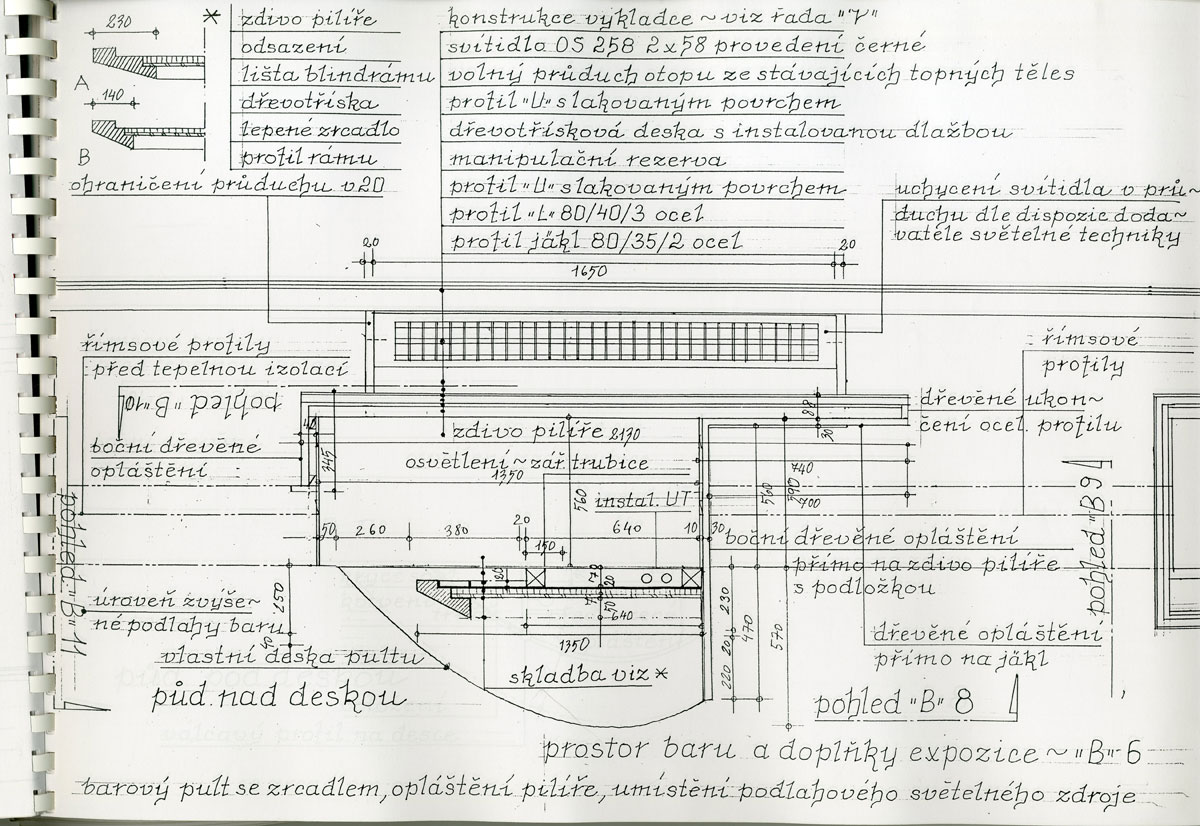 230
*
zdivo pilíře
odsazení
lišta blindrámu
dřevotříska
lepené zrcadlo
profil rámu
A
140
B
ohraničení průduchu v20
konstrukce výkladce ~ viz řada "V"
svítidlo OS 258 2x58 provedení černé
volný průduch otopu ze stávajících topných těles
profil "U" s lakovaným povrchem
dřevotřísková deska s instalovanou dlažbou
manipulační rezerva
profil "U" s lakovaným povrchem
profil "L" 80/40/3 ocel
profil jäkl 80/35/2 ocel
uchycení svítidla v prů~
duchu dle dispozic doda~
vatele světelné techniky
20
1650
20
římsové profily
před tepelnou izolací
pohled "B" 10
boční dřevěné
opláštění
římsové
profily
dřevěné ukon~
čení ocel. profilu
88
30
40
345
zdivo pilíře 2170
osvětlení ~ zář. trubice
1350
instal. UT
560
740
700
560
590
50
260
380
20
150
640
10
30
boční dřevěné opláštění
přímo na zdivo pilíře
s podložkou
pohled "B" 9
pohled "B" 11
úroveň zvýše~
né podlahy baru
250
40
20
20
50
640
1350
230
20
220
470
570
dřevěné opláštění
přímo na jäkl
vlastní deska pultu
skladba viz *
půd. nad deskou
pohled "B" 8
prostor baru a doplňky expozice ~ "B"-6
barový pult se zrcadlem, opláštění pilíře, umístění podlahového světelného zdroje